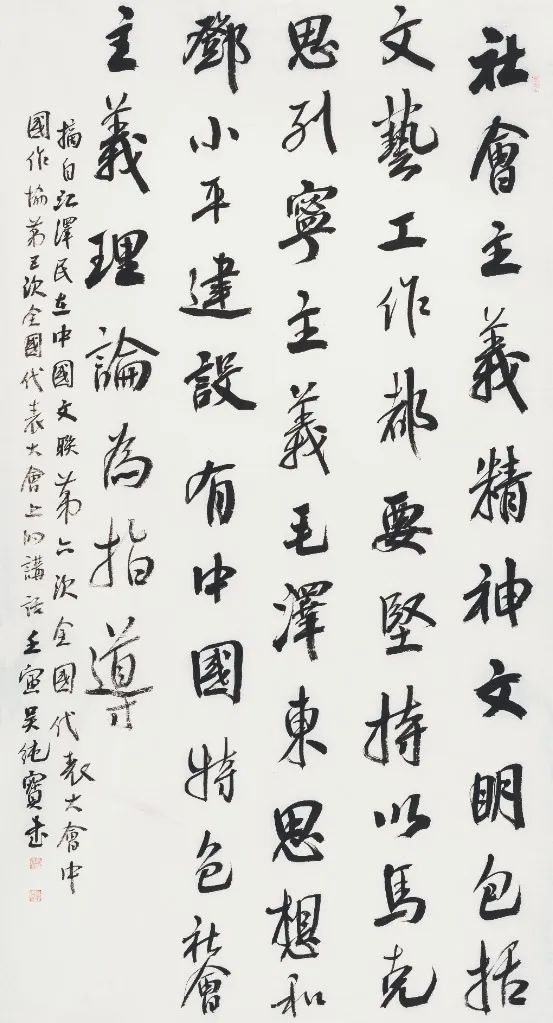 社會主義精神文明包括
文藝工作都要堅持以馬克
思列寧主義毛澤東思想和
鄧小平建設有中國特色社會
主義理論為指導
摘自江澤民在中國文聯第六次全國代表大會中
國作協第五次全國代表大會上的講話壬寅吳純寶書